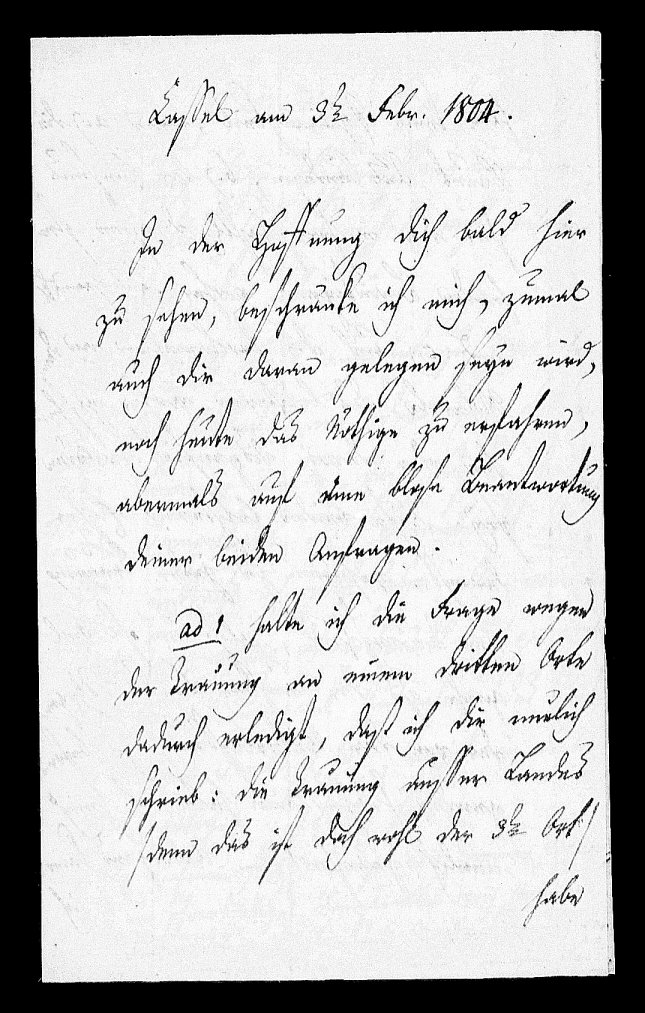 Cassel am 3t Febr. 1804.
In der Hoffnung Dich bald hier
zu sehen, beschränke ich mich, zumal
auch dir daran gelegen seyn wird,
noch heute das Nöthige zu erfahren,
abermals auf eine blose Beantwortung
deiner beiden Anfragen.
ad 1 halte ich die Frage wegen
der Trauung an einem dritten Orte
dadurch erledigt, daß ich dir neulich
schrieb: die Trauung ausser Landes
/denn das ist doch wohl der 3te Ort/
habe